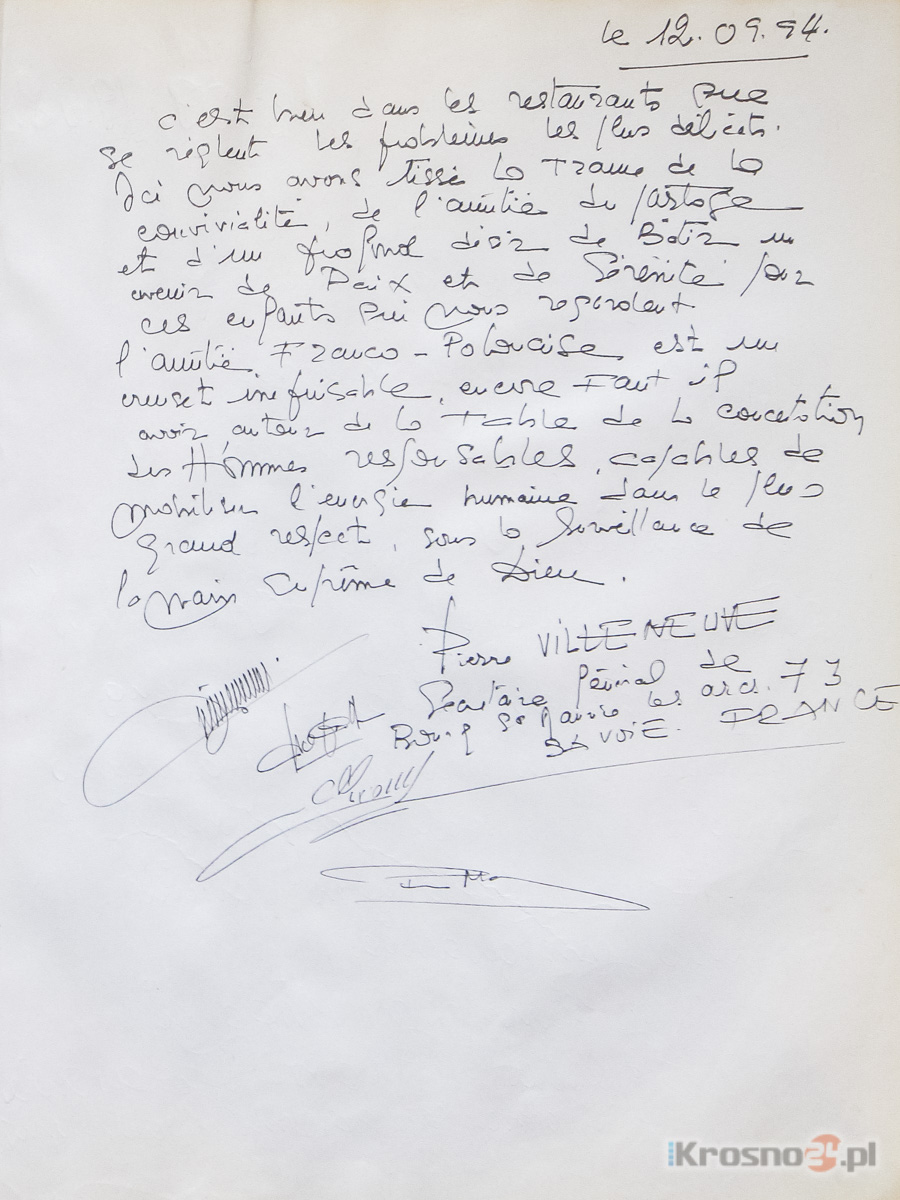 le 12.09.94.
c'est bien dans les restaurants que
se règlent les problèmes les plus délicats.
Ici nous avons tissé la Trame de la
convivialité, de l'amitié du partage
et d'un profond désir de Bâtir un
avenir de Paix et de Sérénité pour
ces enfants qui nous regardent
l'amitié Franco-Polonaise, est un
creuset inépuisable, encore Faut il
avoir, autour de la Table de la concertation
des Hommes responsables, capables de
mobiliser l'énergie humaine dans le plus
Grand respect, sous la Surveillance de
la main Suprême de Dieu.
Pierre VILLENEUVE
Secrétaire Général de
Bourg St Maurice les arcs. 73
SAVOIE. FRANCE
iKrosno24.pl